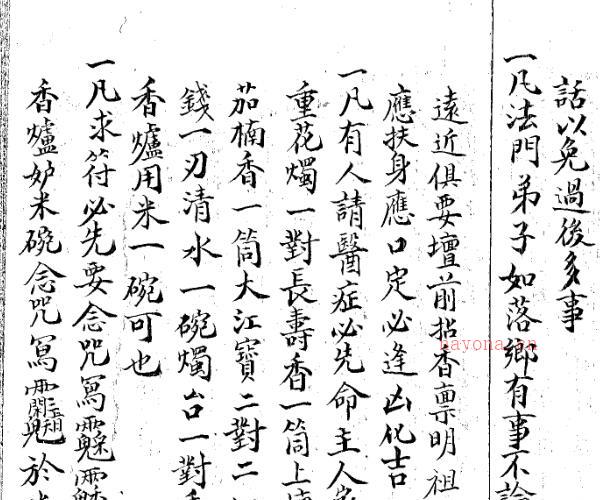 話以免過後多事
一凡法門弟子如落鄉有事不論
遠近俱要壇前拈香稟明祖
應扶身應口定必逢凶化吉
一凡有人請醫症必先命主人家
重花燭一對長壽香一筒上
茄楠香一筒大江寶二對二
錢一刃清水一碗燭台一對香
香爐用米一碗可也
一凡求符必先要念咒寫
香爐妒米碗念咒寫於
nayona.cn